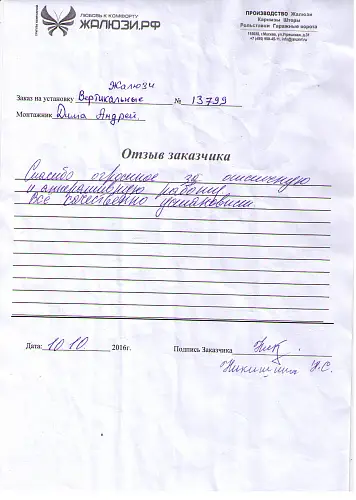 ЛЮБОВЬ К КОМФОРТУ
ЖАЛЮЗИ.РФ
ПРОИЗВОДСТВО Жалюзи
Карнизы Шторы
Рольставни Гаражные ворота
Жалюзи
Заказ на установку Вертикальные № 13799
Монтажник Дима Андрей
Отзыв заказчика
Спасибо огромное за отличную
и оперативную работу
Всё качественно установили.
Дата: 10.10. 2016г. Подпись Заказчика
Никитина Н.С.